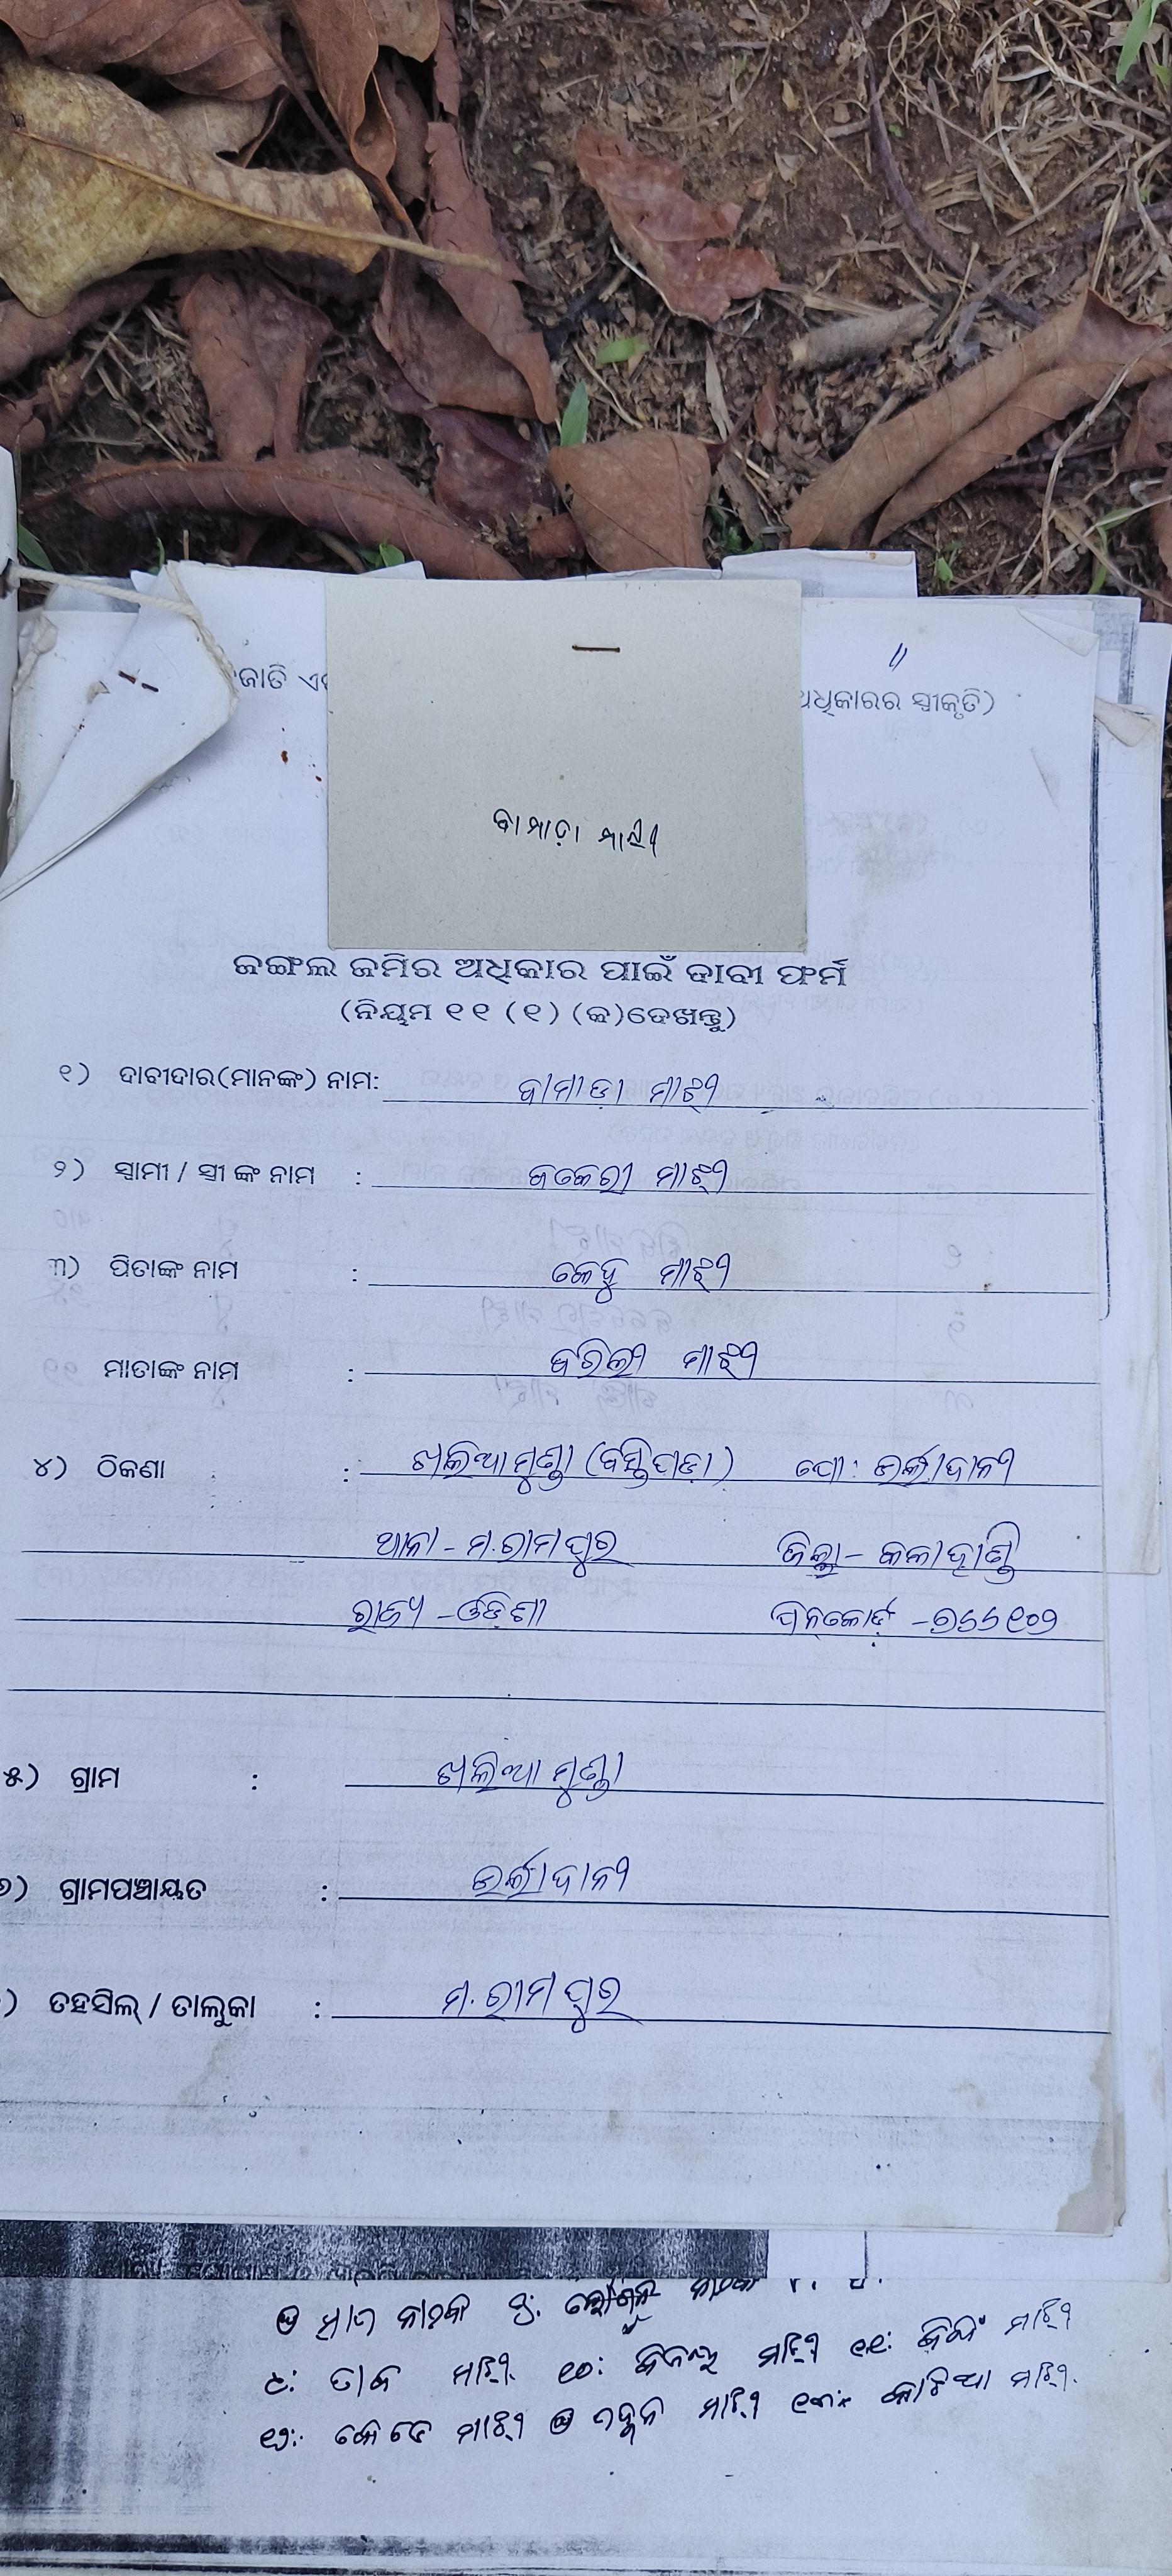 ଜାତି ଏବ
ଅଧିକାରର ସ୍ଵୀକୃତି)
ବାମାଡ଼ା ମାଝୀ
ଜଙ୍ଗଲ ଜମିର ଅଧିକାର ପାଇଁ ଦାବୀ ଫର୍ମ
(ନିୟମ ୧୧ (୧) (କ)ଦେଖନ୍ତୁ)
୧) ଦାବୀଦାର(ମାନଙ୍କ) ନାମ: ବାମାଡ଼ା ମାଝୀ
୨) ସ୍ଵାମୀ / ସ୍ତ୍ରୀ ଙ୍କ ନାମ : ମାଝୀ
୩) ପିତାଙ୍କ ନାମ : କେହୁ ମାଝୀ
ମାତାଙ୍କ ନାମ : ମାଝୀ
୪) ଠିକଣା : ଖଲିଆମୁଣ୍ଡା (ବସ୍ତିପଡ଼ା) ପୋ: ଉର୍ଲାଦାନୀ
ଥାନା - ମ.ରାମପୁର ଜିଲ୍ଲା - କଳାହାଣ୍ଡି
ରାଜ୍ୟ - ଓଡ଼ିଶା ପିନ୍‌କୋଡ଼ - ୭୬୬୧୦୨
୫) ଗ୍ରାମ : ଖଲିଆମୁଣ୍ଡା
୬) ଗ୍ରାମପଞ୍ଚାୟତ : ଉର୍ଲାଦାନୀ
) ତହସିଲ୍ / ତାଲୁକା : ମ.ରାମପୁର
୯: ମାଝି ୧୦: ମାଝି ୧୧: ମାଝି
୧୨: ମାଝି ମାଝି ୧୩: ମାଝି